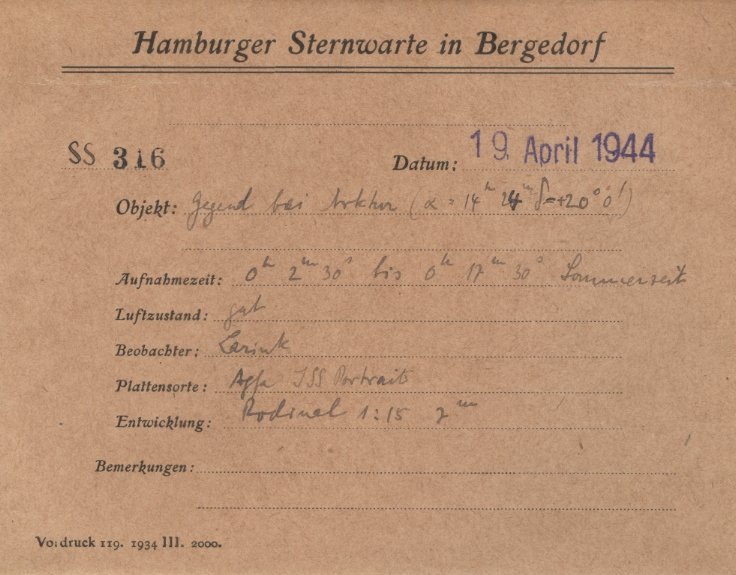 Hamburger Sternwarte in Bergedorf
SS 316
Datum: 19. April 1944
Objekt: Gegend bei Arktur (α = 14ʰ 24ᵐ δ = +20° 0')
Aufnahmezeit: 0ʰ 2ᵐ 30ˢ bis 0ʰ 17ᵐ 30ˢ Sommerzeit
Luftzustand: gut
Beobachter: Larink
Plattensorte: Agfa ISS Portrait
Entwicklung: Rodinal 1:15 7ᵐ
Bemerkungen:
Vordruck 119. 1934 III. 2000.